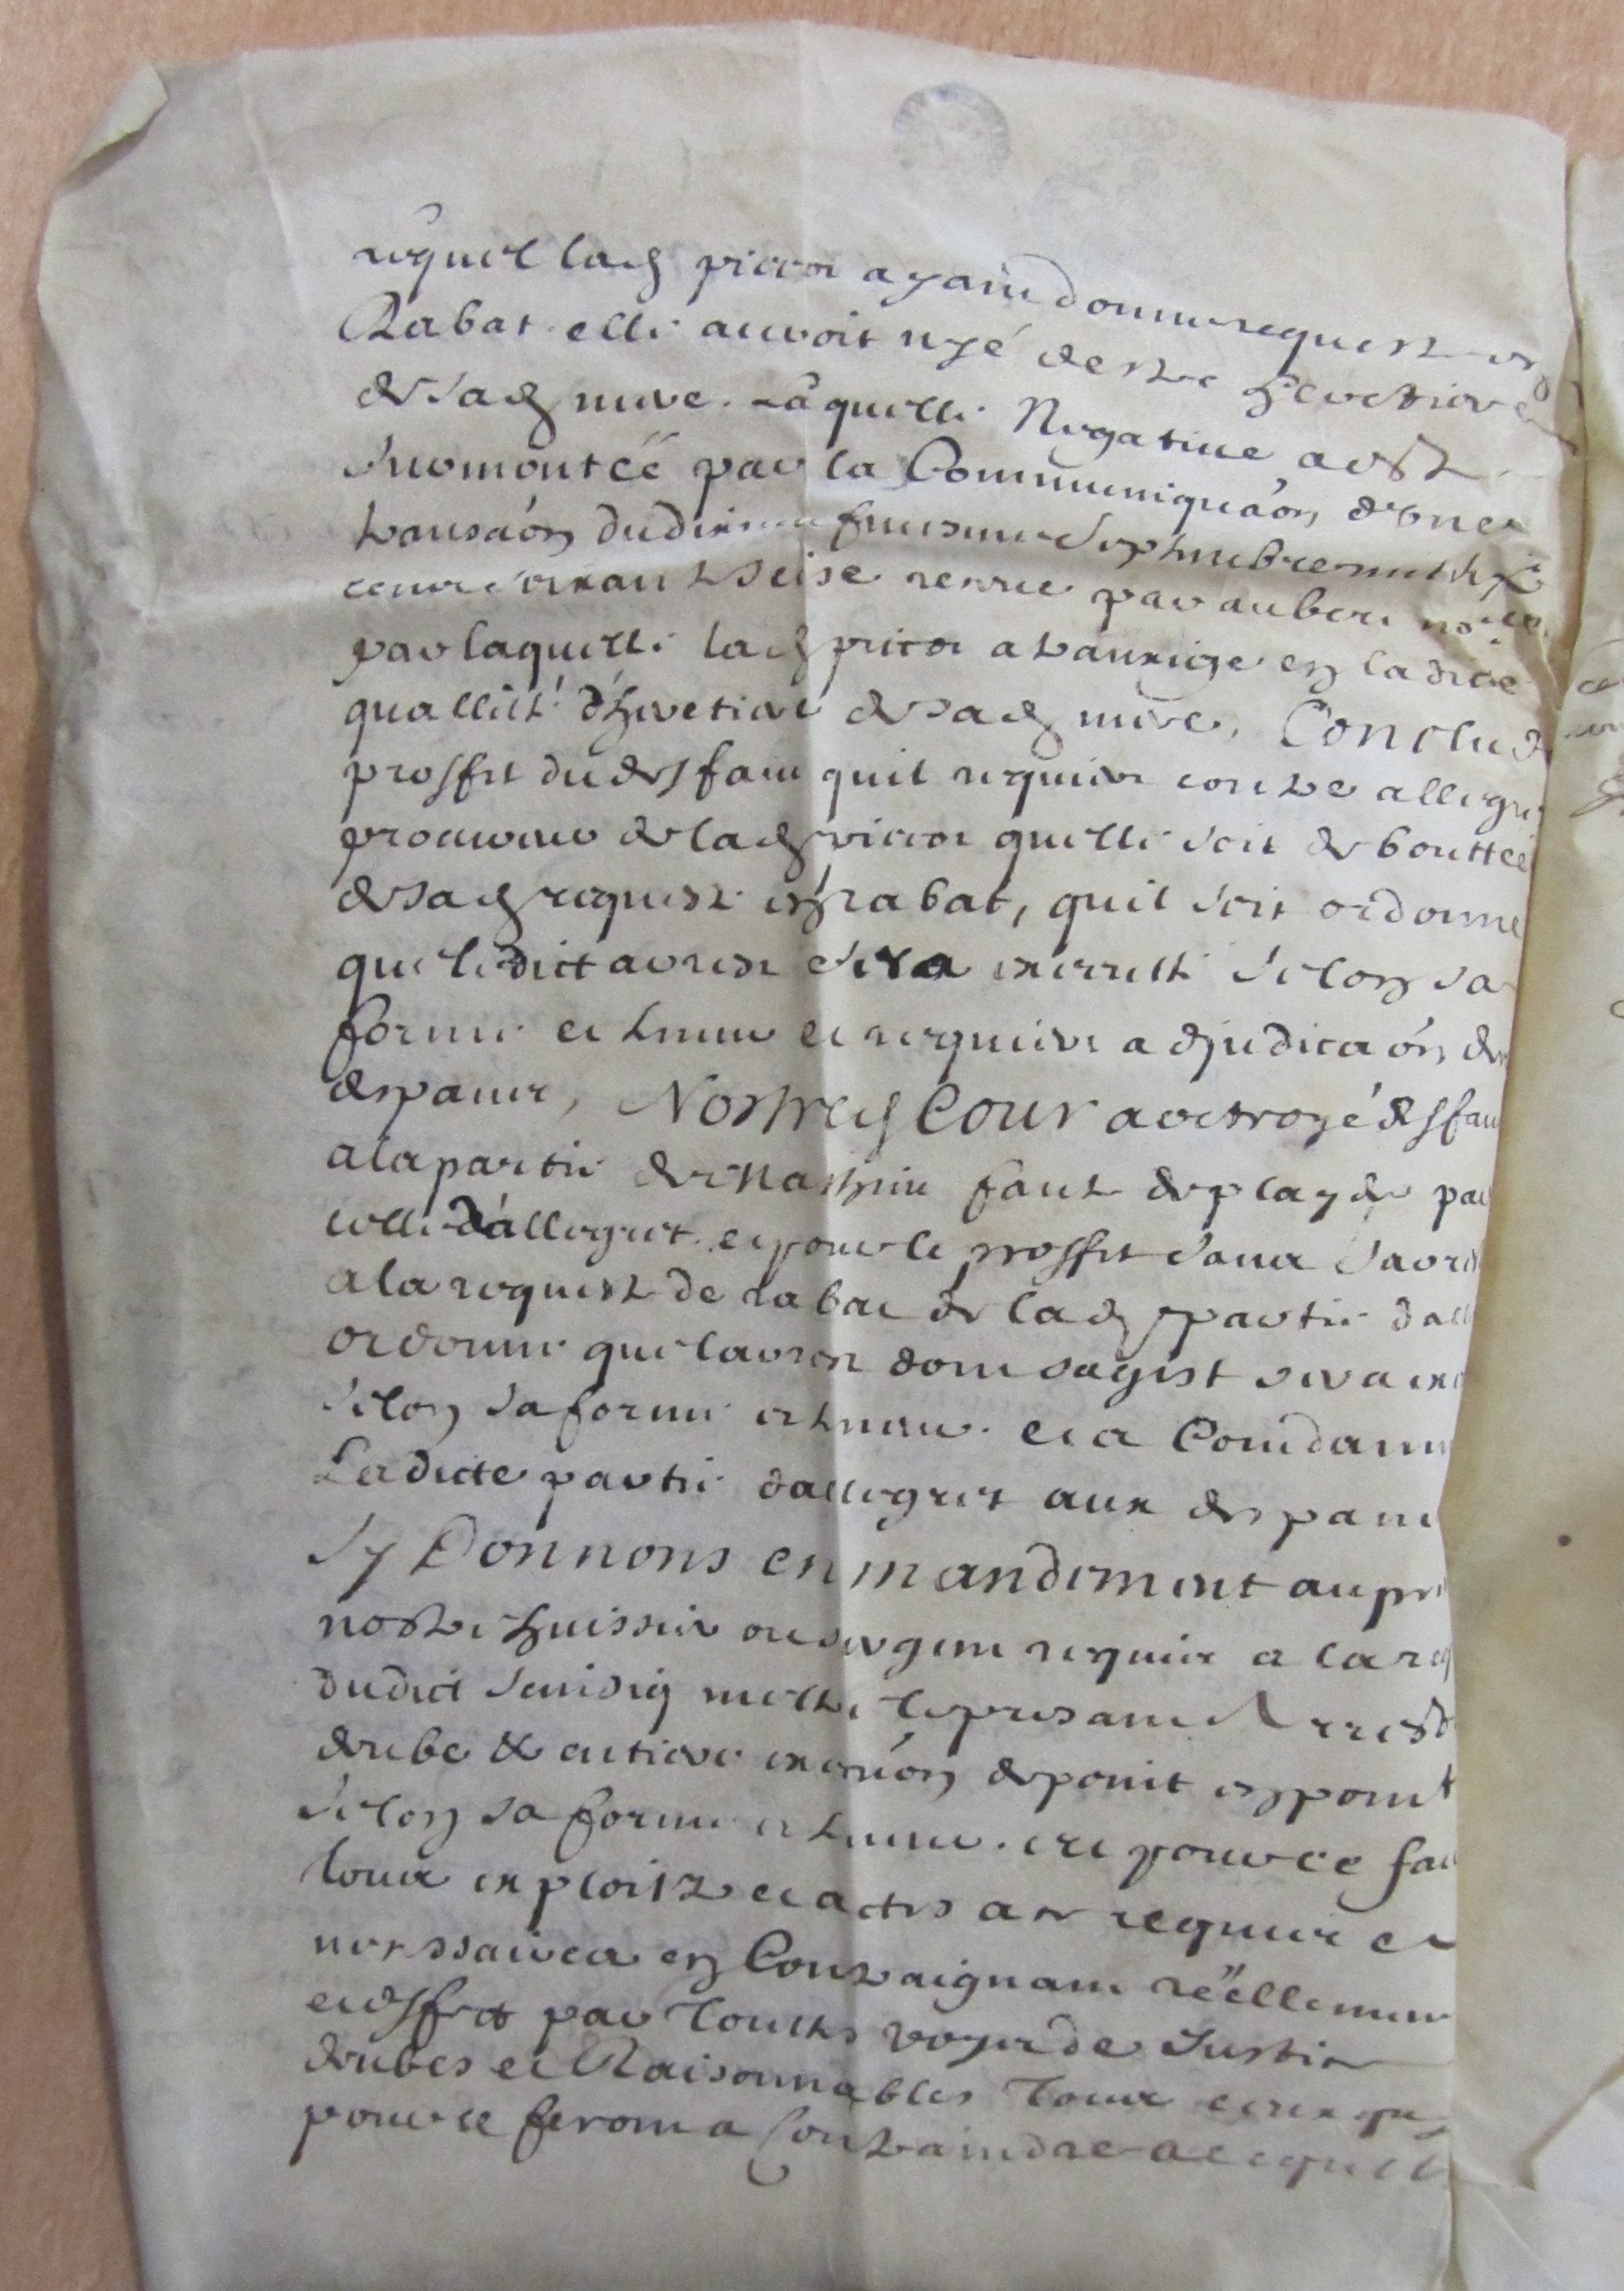 requel lad picon ayant donné requeste en
Rabat elle auroit nyé destre heretiere
de sad mere. Laquelle Negatiue a este
surmontée par la Communiqãon d'vne
transãon du dix septembre mil six
cent soixante seise receue par aubert no.re
par laquelle lad picon a transigé en ladite
quallité d'heretiere de sad mere, Conclud
proffit du deffaut quil requiert contre allegret
procureur de lad picon quelle soit deboutteé
de sad requeste en rabat, quil soit ordonné
que ledict arrest sera executté selon sa
forme et teneur et requiert adjudicaõn des
despans, Nostred Cour a octroyé deffau
a la partie de faute de playder par
celle d'allegret. et pour le proffit sans sarr
a la requeste de rabat de lad partie dall
ordonne que larrest dont sagist sera exe
selon sa forme et teneur. et a Condamn
Ladicte partie dallegret aux despans
Sy Donnons en mandement au pr
nostre huissier ou sergent requis a la req
dudict mettre le present Arrest
deube & entiere execuõn de point en point
selon sa forme et teneur. et pour ce fai
tous exploitz et actes a ce requis et
necessaires en Contraignant réellement
et deffect par touttes voyes de Justice
deubes et Raisonnables tous ceux qui
pour ce feront a Contraindre